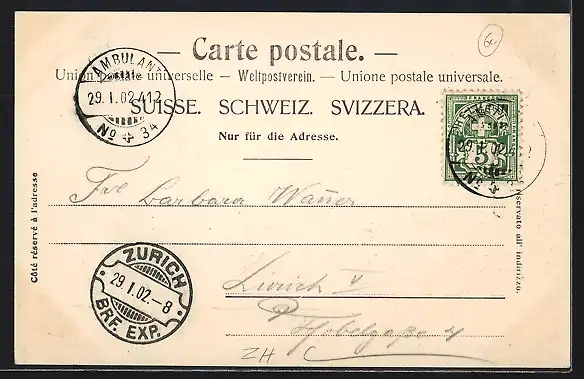 — Carte postale. —
Union postale universelle — Weltpostverein. — Unione postale universale.
SUISSE. SCHWEIZ. SVIZZERA.
Nur für die Adresse.
AMBULANT
29. I. 02.
No 34
29 I 02
No
5
Côté réservé à l'adresse
riservato all' indirizzo.
Barbara
Zürich V
4
ZÜRICH
29. I. 02.–8
BRF. EXP.
ZH